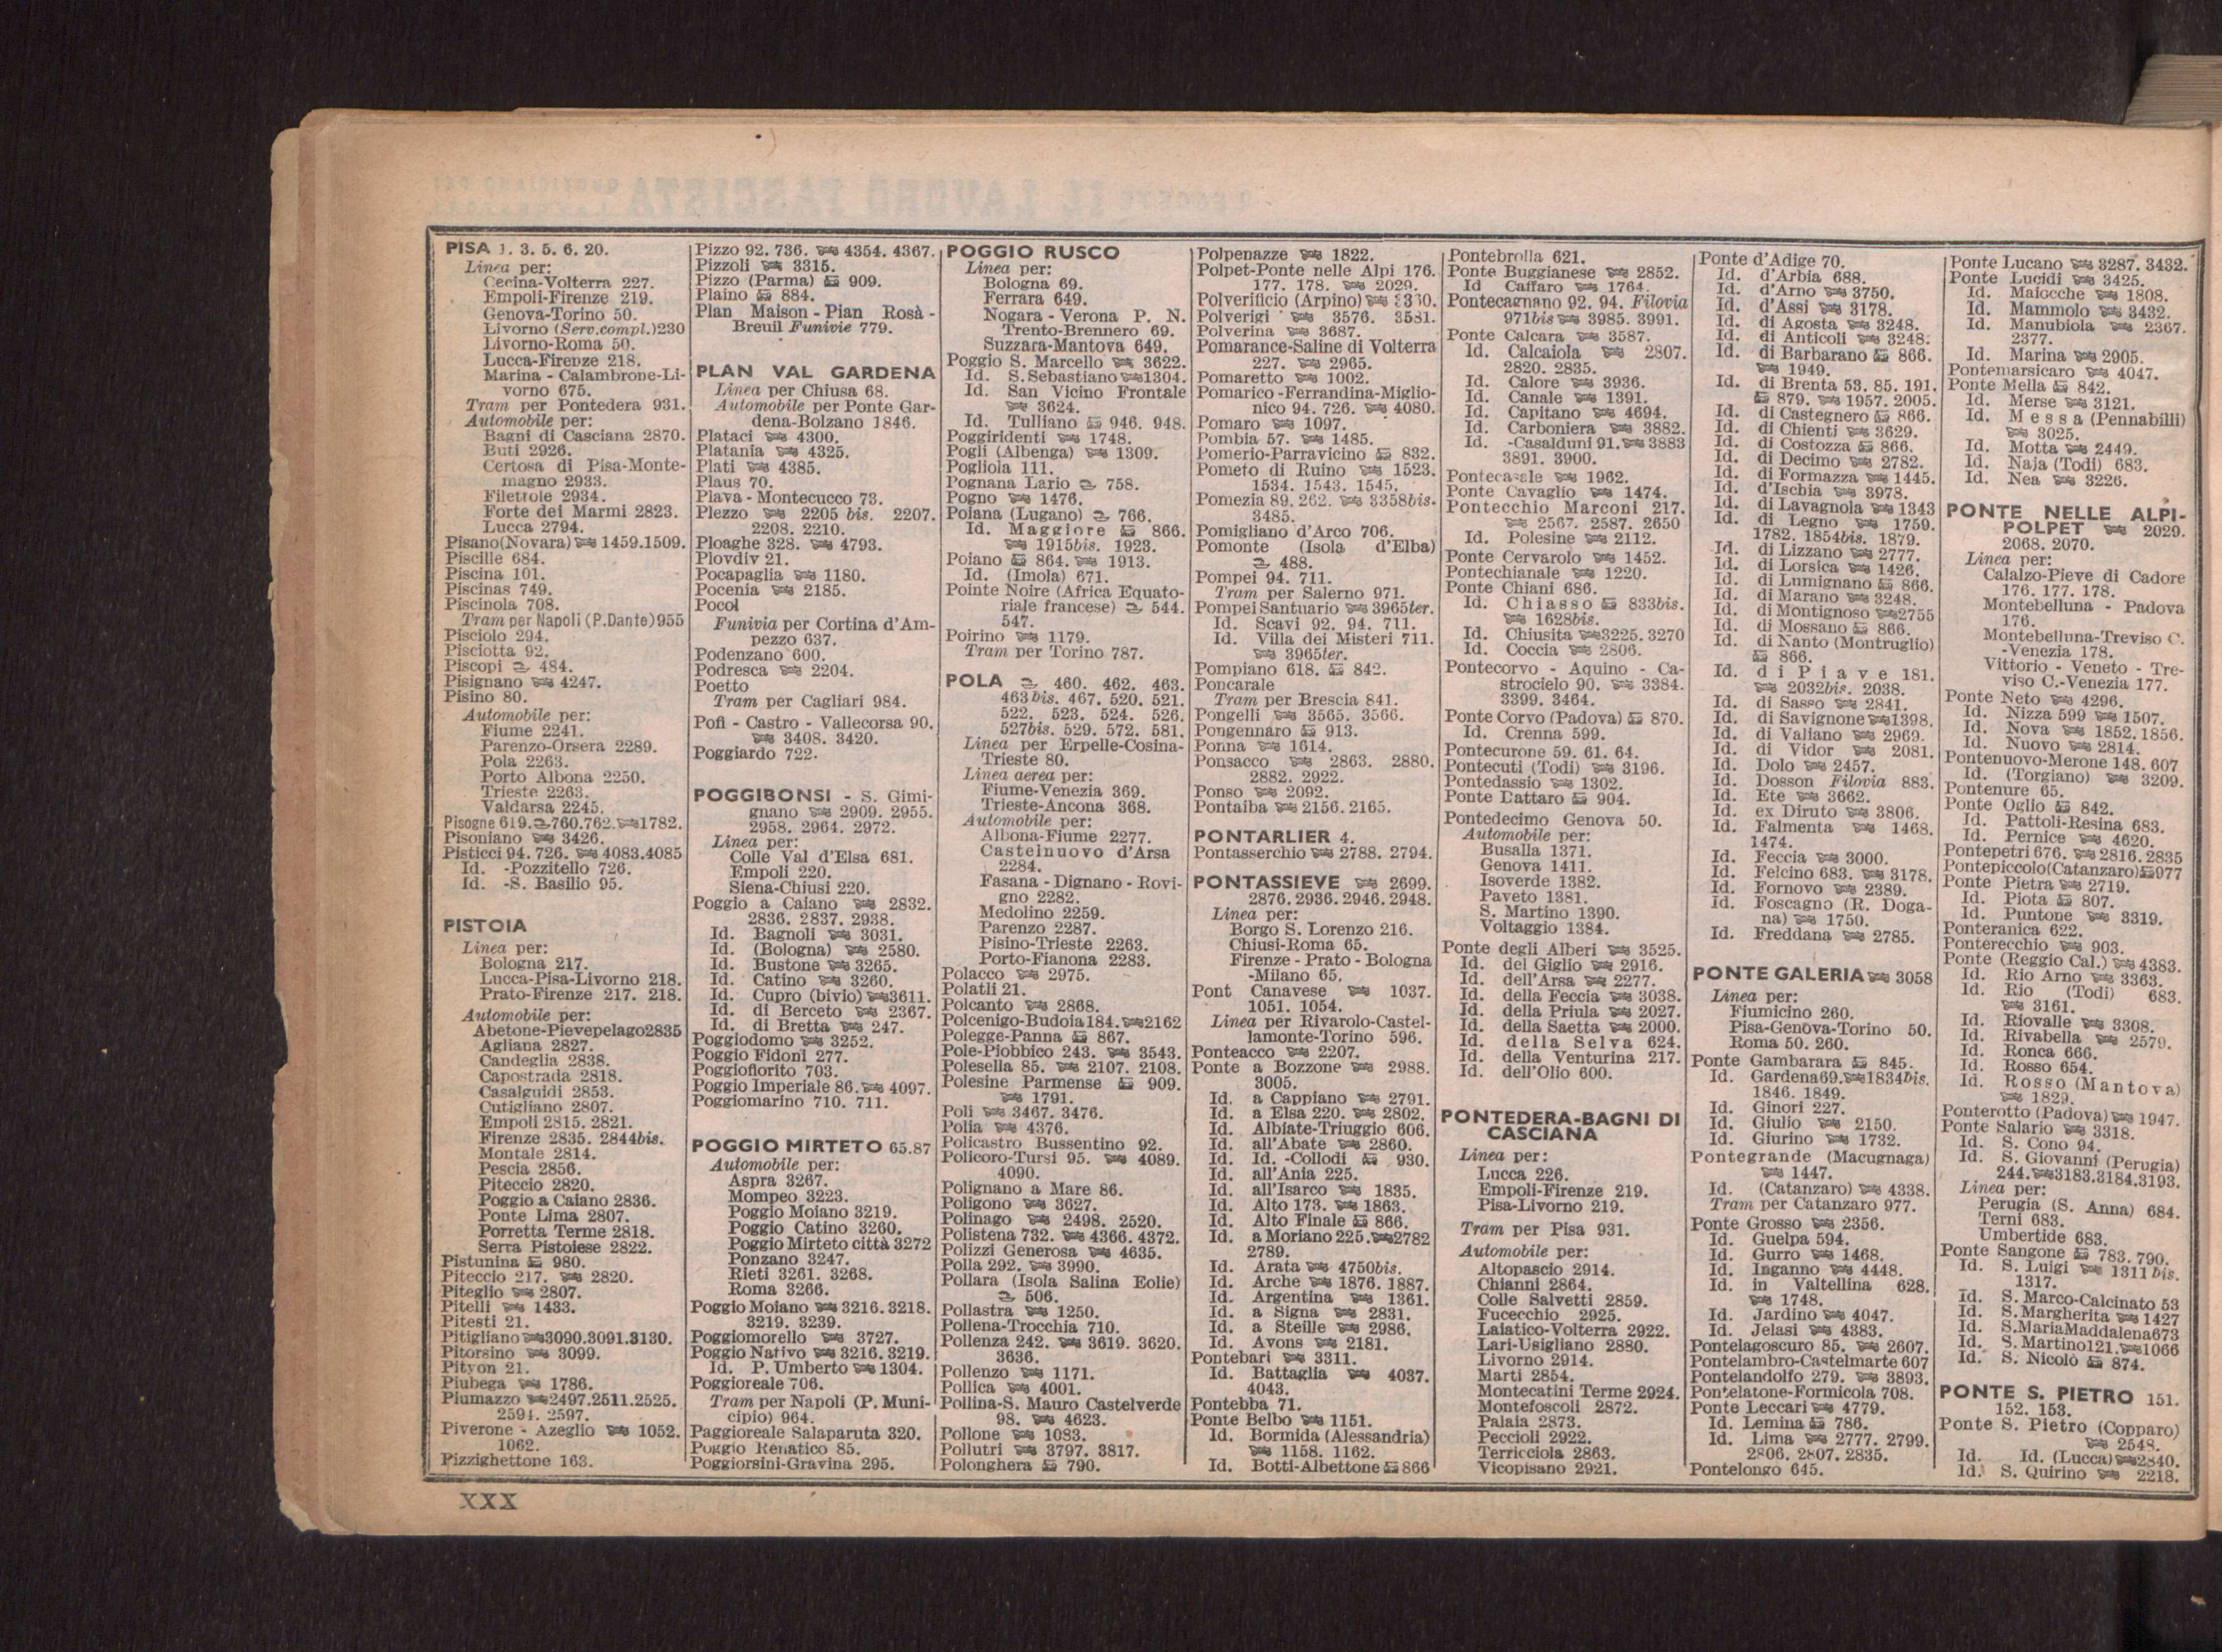 PISA 1. 3. 5. 6. 20.
Linea per:
Cecina-Volterra 227.
Empoli-Firenze 219.
Genova-Torino 50.
Livorno (Serv. compl.) 230
Livorno-Roma 50.
Lucca-Firenze 218.
Marina - Calambrone-Li-
vorno 675.
Tram per Pontedera 931.
Automobile per:
Bagni di Casciana 2870.
Buti 2926.
Certosa di Pisa-Monte-
magno 2933.
Filettole 2934.
Forte dei Marmi 2823.
Lucca 2794.
Pisano (Novara) 1459. 1509.
Piscille 684.
Piscina 101.
Piscinas 749.
Piscinola 708.
Tram per Napoli (P. Dante) 955
Pisciolo 294.
Pisciotta 92.
Piscopi 484.
Pisignano 4247.
Pisino 80.
Automobile per:
Fiume 2241.
Parenzo-Orsera 2289.
Pola 2263.
Porto Albona 2250.
Trieste 2263.
Valdarsa 2245.
Pisogne 619. 760. 762. 1782.
Pisoniano 3426.
Pisticci 94. 726. 4083. 4085
Id. -Pozzitello 726.
Id. -S. Basilio 95.
PISTOIA
Linea per:
Bologna 217.
Lucca-Pisa-Livorno 218.
Prato-Firenze 217. 218.
Automobile per:
Abetone-Pievepelago 2835
Agliana 2827.
Candeglia 2838.
Capostrada 2818.
Casalguidi 2853.
Cutigliano 2807.
Empoli 2815. 2821.
Firenze 2835. 2844bis.
Montale 2814.
Pescia 2856.
Piteccio 2820.
Poggio a Caiano 2836.
Ponte Lima 2807.
Porretta Terme 2818.
Serra Pistoiese 2822.
Pistunina 980.
Piteccio 217. 2820.
Piteglio 2807.
Pitelli 1433.
Pitesti 21.
Pitigliano 3090. 3091. 3130.
Pitorsino 3099.
Pityon 21.
Piubega 1786.
Piumazzo 2497. 2511. 2525.
2594. 2597.
Piverone - Azeglio 1052.
1062.
Pizzighettone 163.
Pizzo 92. 736. 4354. 4367.
Pizzoli 3315.
Pizzo (Parma) 909.
Plaino 884.
Plan Maison - Pian Rosà -
Breuil Funivie 779.
PLAN VAL GARDENA
Linea per Chiusa 68.
Automobile per Ponte Gar-
dena-Bolzano 1846.
Plataci 4300.
Platania 4325.
Plati 4385.
Plaus 70.
Plava - Montecucco 73.
Plezzo 2205 bis. 2207.
2208. 2210.
Ploaghe 328. 4793.
Plovdiv 21.
Pocapaglia 1180.
Pocenia 2185.
Pocol
Funivia per Cortina d'Am-
pezzo 637.
Podenzano 600.
Podresca 2204.
Poetto
Tram per Cagliari 984.
Pofi - Castro - Vallecorsa 90.
3408. 3420.
Poggiardo 722.
POGGIBONSI - S. Gimi-
gnano 2909. 2955.
2958. 2964. 2972.
Linea per:
Colle Val d'Elsa 681.
Empoli 220.
Siena-Chiusi 220.
Poggio a Caiano 2832.
2836. 2837. 2938.
Id. Bagnoli 3031.
Id. (Bologna) 2580.
Id. Bustone 3265.
Id. Catino 3260.
Id. Cupro (bivio) 3611.
Id. di Berceto 2367.
Id. di Bretta 247.
Poggiodomo 3252.
Poggio Fidoni 277.
Poggiofiorito 703.
Poggio Imperiale 86. 4097.
Poggiomarino 710. 711.
POGGIO MIRTETO 65.87
Automobile per:
Aspra 3267.
Mompeo 3223.
Poggio Moiano 3219.
Poggio Catino 3260.
Poggio Mirteto città 3272
Ponzano 3247.
Rieti 3261. 3268.
Roma 3266.
Poggio Moiano 3216. 3218.
3219. 3239.
Poggiomorello 3727.
Poggio Nativo 3216. 3219.
Id. P. Umberto 1304.
Poggioreale 706.
Tram per Napoli (P. Muni-
cipio) 964.
Paggioreale Salaparuta 320.
Poggio Renatico 85.
Poggiorsini-Gravina 295.
POGGIO RUSCO
Linea per:
Bologna 69.
Ferrara 649.
Nogara - Verona P. N.
Trento-Brennero 69.
Suzzara-Mantova 649.
Poggio S. Marcello 3622.
Id. S. Sebastiano 1304.
Id. San Vicino Frontale
3624.
Id. Tulliano 946. 948.
Poggiridenti 1748.
Pogli (Albenga) 1309.
Pogliola 111.
Pognana Lario 758.
Pogno 1476.
Poiana (Lugano) 766.
Id. Maggiore 866.
1915bis. 1923.
Poiano 864. 1913.
Id. (Imola) 671.
Pointe Noire (Africa Equato-
riale francese) 544.
547.
Poirino 1179.
Tram per Torino 787.
POLA 460. 462. 463.
463bis. 467. 520. 521.
522. 523. 524. 526.
527bis. 529. 572. 581.
Linea per Erpelle-Cosina-
Trieste 80.
Linea aerea per:
Fiume-Venezia 369.
Trieste-Ancona 368.
Automobile per:
Albona-Fiume 2277.
Castelnuovo d'Arsa
2284.
Fasana - Dignano - Rovi-
gno 2282.
Medolino 2259.
Parenzo 2287.
Pisino-Trieste 2263.
Porto-Fianona 2283.
Polacco 2975.
Polatli 21.
Polcanto 2868.
Polcenigo-Budoia 184. 2162
Polegge-Panna 867.
Pole-Piobbico 243. 3543.
Polesella 85. 2107. 2108.
Polesine Parmense 909.
1791.
Poli 3467. 3476.
Polia 4376.
Policastro Bussentino 92.
Policoro-Tursi 95. 4089.
4090.
Polignano a Mare 86.
Poligono 3627.
Polinago 2498. 2520.
Polistena 732. 4366. 4372.
Polizzi Generosa 4635.
Polla 292. 3990.
Pollara (Isola Salina Eolie)
506.
Pollastra 1250.
Pollena-Trocchia 710.
Pollenza 242. 3619. 3620.
3636.
Pollenzo 1171.
Pollica 4001.
Pollina-S. Mauro Castelverde
98. 4623.
Pollone 1083.
Pollutri 3797. 3817.
Polonghera 790.
Polpenazze 1822.
Polpet-Ponte nelle Alpi 176.
177. 178. 2029.
Polverificio (Arpino)
Polverigi 3576. 3581.
Polverina 3687.
Pomarance-Saline di Volterra
227. 2965.
Pomaretto 1002.
Pomarico - Ferrandina-Miglio-
nico 94. 726. 4080.
Pomaro 1097.
Pombia 57. 1485.
Pomerio-Parravicino 832.
Pometo di Ruino 1523.
1534. 1543. 1545.
Pomezia 89. 262. 3358bis.
3485.
Pomigliano d'Arco 706.
Pomonte (Isola d'Elba)
488.
Pompei 94. 711.
Tram per Salerno 971.
Pompei Santuario 3965ter.
Id. Scavi 92. 94. 711.
Id. Villa dei Misteri 711.
3965ter.
Pompiano 618. 842.
Poncarale
Tram per Brescia 841.
Pongelli 3565. 3566.
Pongennaro 913.
Ponna 1614.
Ponsacco 2863. 2880.
2882. 2922.
Ponso 2092.
Pontaiba 2156. 2165.
PONTARLIER 4.
Pontasserchio 2788. 2794.
PONTASSIEVE 2699.
2876. 2936. 2946. 2948.
Linea per:
Borgo S. Lorenzo 216.
Chiusi-Roma 65.
Firenze - Prato - Bologna
-Milano 65.
Pont Canavese 1037.
1051. 1054.
Linea per Rivarolo-Castel-
lamonte-Torino 596.
Ponteacco 2207.
Ponte a Bozzone 2988.
3005.
Id. a Cappiano 2791.
Id. a Elsa 220. 2802.
Id. Albiate-Triuggio 606.
Id. all'Abate 2860.
Id. Id. -Collodi 930.
Id. all'Ania 225.
Id. all'Isarco 1835.
Id. Alto 173. 1863.
Id. Alto Finale 866.
Id. a Moriano 225. 2782
2789.
Id. Arata 4750bis.
Id. Arche 1876. 1887.
Id. Argentina 1361.
Id. a Signa 2831.
Id. a Steille 2986.
Id. Avons 2181.
Pontebari 3311.
Id. Battaglia 4037.
4043.
Pontebba 71.
Ponte Belbo 1151.
Id. Bormida (Alessandria)
1158. 1162.
Id. Botti-Albettone 866
Pontebrolla 621.
Ponte Buggianese 2852.
Id Caffaro 1764.
Pontecagnano 92. 94. Filovia
971bis 3985. 3991.
Ponte Calcara 3587.
Id. Calcaiola 2807.
2820. 2835.
Id. Calore 3936.
Id. Canale 1391.
Id. Capitano 4694.
Id. Carboniera 3882.
Id. -Casalduni 91. 3883
3891. 3900.
Pontecasale 1962.
Ponte Cavaglio 1474.
Pontecchio Marconi 217.
2567. 2587. 2650
Id. Polesine 2112.
Ponte Cervarolo 1452.
Pontechianale 1220.
Ponte Chiani 686.
Id. Chiasso 833bis.
1628bis.
Id. Chiusita 3225. 3270
Id. Coccia 2806.
Pontecorvo - Aquino - Ca-
strocielo 90. 3384.
3399. 3464.
Ponte Corvo (Padova) 870.
Id. Crenna 599.
Pontecurone 59. 61. 64.
Pontecuti (Todi) 3196.
Pontedassio 1302.
Ponte Dattaro 904.
Pontedecimo Genova 50.
Automobile per:
Busalla 1371.
Genova 1411.
Isoverde 1382.
Paveto 1381.
S. Martino 1390.
Voltaggio 1384.
Ponte degli Alberi 3525.
Id. del Giglio 2916.
Id. dell'Arsa 2277.
Id. della Feccia 3038.
Id. della Priula 2027.
Id. della Saetta 2000.
Id. della Selva 624.
Id. della Venturina 217.
Id. dell'Olio 600.
PONTEDERA-BAGNI DI
CASCIANA
Linea per:
Lucca 226.
Empoli-Firenze 219.
Pisa-Livorno 219.
Tram per Pisa 931.
Automobile per:
Altopascio 2914.
Chianni 2864.
Colle Salvetti 2859.
Fucecchio 2925.
Laiatico-Volterra 2922.
Lari-Usigliano 2880.
Livorno 2914.
Marti 2854.
Montecatini Terme 2924.
Montefoscoli 2872.
Palaia 2873.
Peccioli 2922.
Terricciola 2863.
Vicopisano 2921.
Ponte d'Adige 70.
Id. d'Arbia 688.
Id. d'Arno 3750.
Id. d'Assi 3178.
Id. di Agosta 3248.
Id. di Anticoli 3248.
Id. di Barbarano 866.
1949.
Id. di Brenta 53. 85. 191.
879. 1957. 2005.
Id. di Castegnero 866.
Id. di Chienti 3629.
Id. di Costozza 866.
Id. di Decimo 2782.
Id. di Formazza 1445.
Id. d'Ischia 3978.
Id. di Lavagnola 1343
Id. di Legno 1759.
1782. 1854bis. 1879.
Id. di Lizzano 2777.
Id. di Lorsica 1426.
Id. di Lumignano 866.
Id. di Marano 3248.
Id. di Montignoso 2755
Id. di Mossano 866.
Id. di Nanto (Montruglio)
866.
Id. di Piave 181.
2032bis. 2038.
Id. di Sasso 2841.
Id. di Savignone 1398.
Id. di Valiano 2969.
Id. di Vidor 2081.
Id. Dolo 2457.
Id. Dosson Filovia 883.
Id. Ete 3662.
Id. ex Diruto 3806.
Id. Falmenta 1468.
1474.
Id. Feccia 3000.
Id. Felcino 683. 3178.
Id. Fornovo 2389.
Id. Foscagno (R. Doga-
na) 1750.
Id. Freddana 2785.
PONTE GALERIA 3058
Linea per:
Fiumicino 260.
Pisa-Genova-Torino 50.
Roma 50. 260.
Ponte Gambarara 845.
Id. Gardena 69. 1834bis.
1846. 1849.
Id. Ginori 227.
Id. Giulio 2150.
Id. Giurino 1732.
Pontegrande (Macugnaga)
1447.
Id. (Catanzaro) 4338.
Tram per Catanzaro 977.
Ponte Grosso 2356.
Id. Guelpa 594.
Id. Gurro 1468.
Id. Inganno 4448.
Id. in Valtellina 628.
1748.
Id. Jardino 4047.
Id. Jelasi 4383.
Pontelagoscuro 85. 2607.
Pontelambro-Castelmarte 607
Pontelandolfo 279. 3893.
Pontelatone-Formicola 708.
Ponte Leccari 4779.
Id. Lemina 786.
Id. Lima 2777. 2799.
2806. 2807. 2835.
Pontelongo 645.
Ponte Lucano 3287. 3432.
Ponte Lucidi 3425.
Id. Maiocche 1808.
Id. Mammolo 3432.
Id. Manubiola 2367.
2377.
Id. Marina 2905.
Pontemarsicaro 4047.
Ponte Mella 842.
Id. Merse 3121.
Id. Messa (Pennabilli)
3025.
Id. Motta 2449.
Id. Naja (Todi) 683.
Id. Nea 3226.
PONTE NELLE ALPI-
POLPET 2029.
2068. 2070.
Linea per:
Calalzo-Pieve di Cadore
176. 177. 178.
Montebelluna - Padova
176.
Montebelluna-Treviso C.
-Venezia 178.
Vittorio - Veneto - Tre-
viso C.-Venezia 177.
Ponte Neto 4296.
Id. Nizza 599 1507.
Id. Nova 1852. 1856.
Id. Nuovo 2814.
Pontenuovo-Merone 148. 607
Id. (Torgiano) 3209.
Pontenure 65.
Ponte Oglio 842.
Id. Pattoli-Resina 683.
Id. Pernice 4620.
Pontepetri 676. 2816. 2835
Pontepiccolo (Catanzaro) 977
Ponte Pietra 2719.
Id. Piota 807.
Id. Puntone 3319.
Ponteranica 622.
Ponterecchio 903.
Ponte (Reggio Cal.) 4383.
Id. Rio Arno 3363.
Id. Rio (Todi) 683.
3161.
Id. Riovalle 3308.
Id. Rivabella 2579.
Id. Ronca 666.
Id. Rosso 654.
Id. Rosso (Mantova)
1829.
Ponterotto (Padova) 1947.
Ponte Salario 3318.
Id. S. Cono 94.
Id. S. Giovanni (Perugia)
244. 3183. 3184. 3193.
Linea per:
Perugia (S. Anna) 684.
Terni 683.
Umbertide 683.
Ponte Sangone 783. 790.
Id. S. Luigi 1311bis.
1317.
Id. S. Marco-Calcinato 53
Id. S. Margherita 1427
Id. S. Maria Maddalena 673
Id. S. Martino 121. 1066
Id. S. Nicolò 874.
PONTE S. PIETRO 151.
152. 153.
Ponte S. Pietro (Copparo)
2548.
Id. Id. (Lucca) 2840.
Id. S. Quirino 2218.
XXX